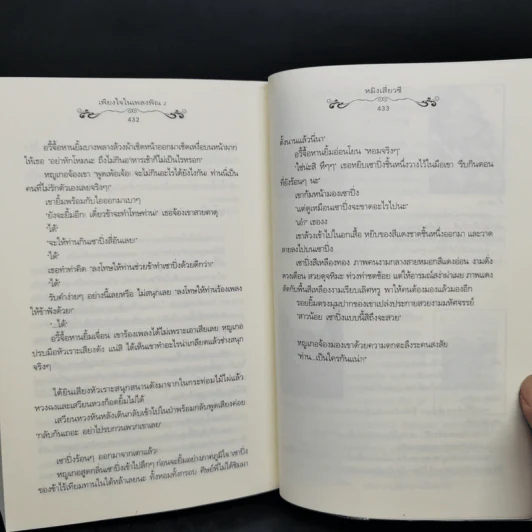 เพียงใจในเพลงพิณ 2
432
อวี้จื้อหานยิ้มบางพลางล้วงผ้าเช็ดหน้าออกมาเช็ดเหงื่อบนหน้าผาก
ให้เธอ "อย่าหักโหมนะ ถึงไม่กินอาหารเช้าก็ไม่เป็นไรหรอก"
หญูเกอจ้องเขา "พูดเพ้อเจ้อ! จะไม่กินอะไรได้ยังไงกัน! ท่านนี่เป็น
คนที่ไม่รักตัวเองเลยจริงๆ"
เขายิ้มพร้อมกับไอออกมาเบาๆ
"ยังจะยิ้มอีก! เดี๋ยวข้าจะทำโทษท่าน!" เธอจ้องเขาสายตาดุ
"ได้"
"จะให้ท่านกินเซาปิ่งสี่อันเลย!"
"ได้"
เธอทำท่าคิด "ลงโทษให้ท่านช่วยข้าทำเซาปิ่งด้วยดีกว่า!"
"ได้"
รับคำง่ายๆ อย่างนี้เลยหรือ ไม่สนุกเลย "ลงโทษให้ท่านร้องเพลง
ให้ข้าฟังด้วย!"
"...ได้"
อวี้จื้อหานยิ้มเจื่อน เขาร้องเพลงได้ไม่เพราะเอาเสียเลย หญูเกอ
ปรบมือหัวเราะเสียงดัง แน่สิ ได้เห็นเขาทำอะไรน่าเกลียดแล้วช่างสนุก
จริงๆ
ได้ยินเสียงหัวเราะสนุกสนานดังมาจากในกระท่อมไม้ไผ่แล้ว
ทวงฉงและเสวียนหวงก็อดยิ้มไม่ได้
เสวียนหวงหันหลังเดินกลับเข้าไปในป่าพร้อมกลับพูดเสียงค่อย
"กลับกันเถอะ อย่าไปรบกวนพวกเขาเลย"
เซาปิ่งร้อนๆ ออกมาจากเตาแล้ว!
หญูเกอสูดกลิ่นเซาปิ่งเข้าไปลึกๆ ก่อนจะยิ้มอย่างภาคภูมิใจ เซาปิ่ง
ของข้าไร้เทียมทานในใต้หล้าเลยนะ ทั้งหอมทั้งกรอบ ศิษย์พี่ไม่ได้ชิมมา
หมิงเสี่ยวซี
433
ตั้งนานแล้วนี่นา"
อวี้จื้อหานยิ้มอ่อนโยน "หอมจริงๆ"
"ใช่น่ะสิ หึๆ" เธอหยิบเซาปิ่งชิ้นหนึ่งวางไว้ในมือเขา "รีบกินตอน
ที่ยังร้อนๆ นะ"
เขาก้มหน้ามองเซาปิ่ง
"แต่ดูเหมือนเซาปิ่งจะขาดอะไรไปนะ"
"เอ๋?" เธองง
เขาล้วงเข้าไปในอกเสื้อ หยิบของสีแดงชาดชิ้นหนึ่งออกมา และวาด
ลงไปบนเซาปิ่ง
เซาปิ่งสีเหลืองทอง ภาพคนงามกลางสายหมอกสีแดงอ่อน งามดั่ง
ดวงเดือน สวยดุจหิมะ ท่วงท่าชดช้อย แต่ให้อารมณ์สง่าผ่าเผย ภาพแดง
จัดกับพื้นสีเหลืองงามเรียบเลิศหรู พาให้คนต้องมองแล้วมองอีก
รอยยิ้มตรงมุมปากของเขาเปล่งประกายสวยงามมหัศจรรย์
"สาวน้อย เซาปิ่งแบบนี้สิถึงจะสวย"
หญูเกอจ้องมองเขาด้วยความตกตะลึงระคนสงสัย
"ท่าน...เป็นใครกันแน่?"